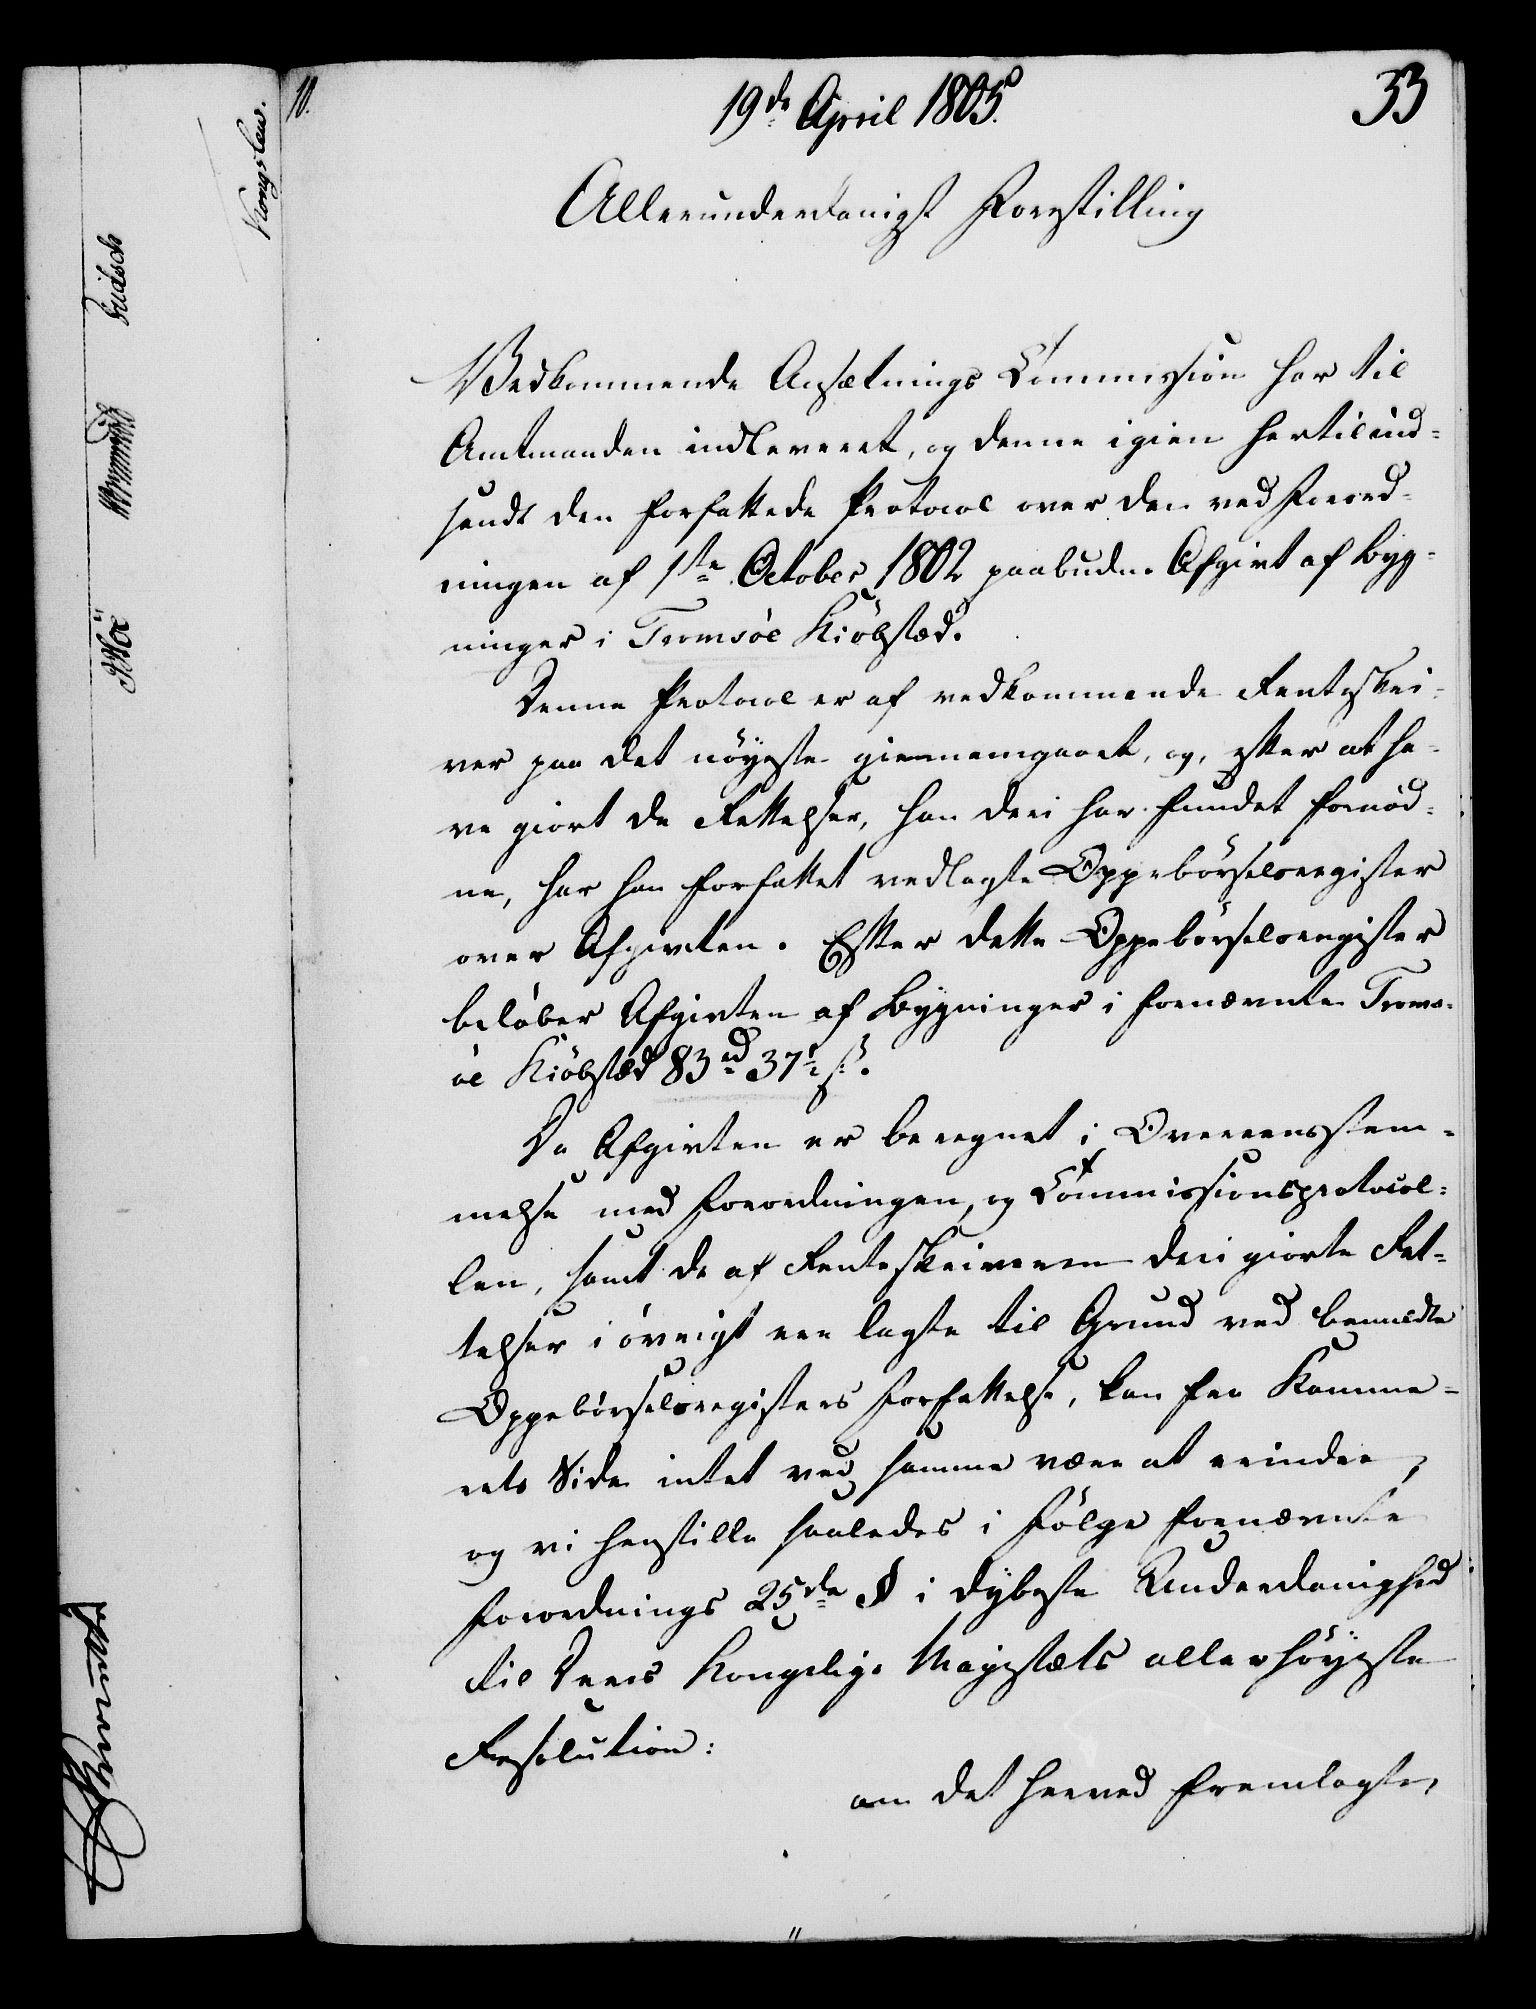 10.
19de April 1805.
33
Allerunderdanigst Forestilling
Vedkommende Ansætnings Commission har til
Amtmanden indleveret, og denne igien hertil ind-
sendt den forfattede Protocol over den ved Forord-
ningen af 1ste October 1802 paabudne Afgivt af Byg-
ninger i Tromsöe Kiöbstæd.
Denne Protocol er af vedkommende Renteskri-
ver paa det nöyeste giennemgaaet, og, efter at ha-
ve giort de Rettelser, han deri har fundet fornöd-
ne, har han forfattet vedlagte Oppebörselsregister
over Afgivten. Efter dette Oppebörselsregister
belöber Afgivten af Bygninger i fornævnte Troms-
öe Kiöbstæd 83 rd 37½ s.
Da Afgivten er beregnet i Overeensstem-
melse med Forordningen, og Commissionsprotocol-
len, samt de af Renteskriveren deri giorte Ret-
telser i övrigt ere lagte til Grund ved bemeldte
Oppebörselsregisters Forfattelse, kan fra Kamme-
rets Side intet ved samme være at erindre,
og vi henstille saaledes i Fölge fornævnte
Forordnings 25de § i dybeste Underdanighed
til Deres Kongelige Majestæts allerhöyeste
Resolution:
om det herved fremlagte,